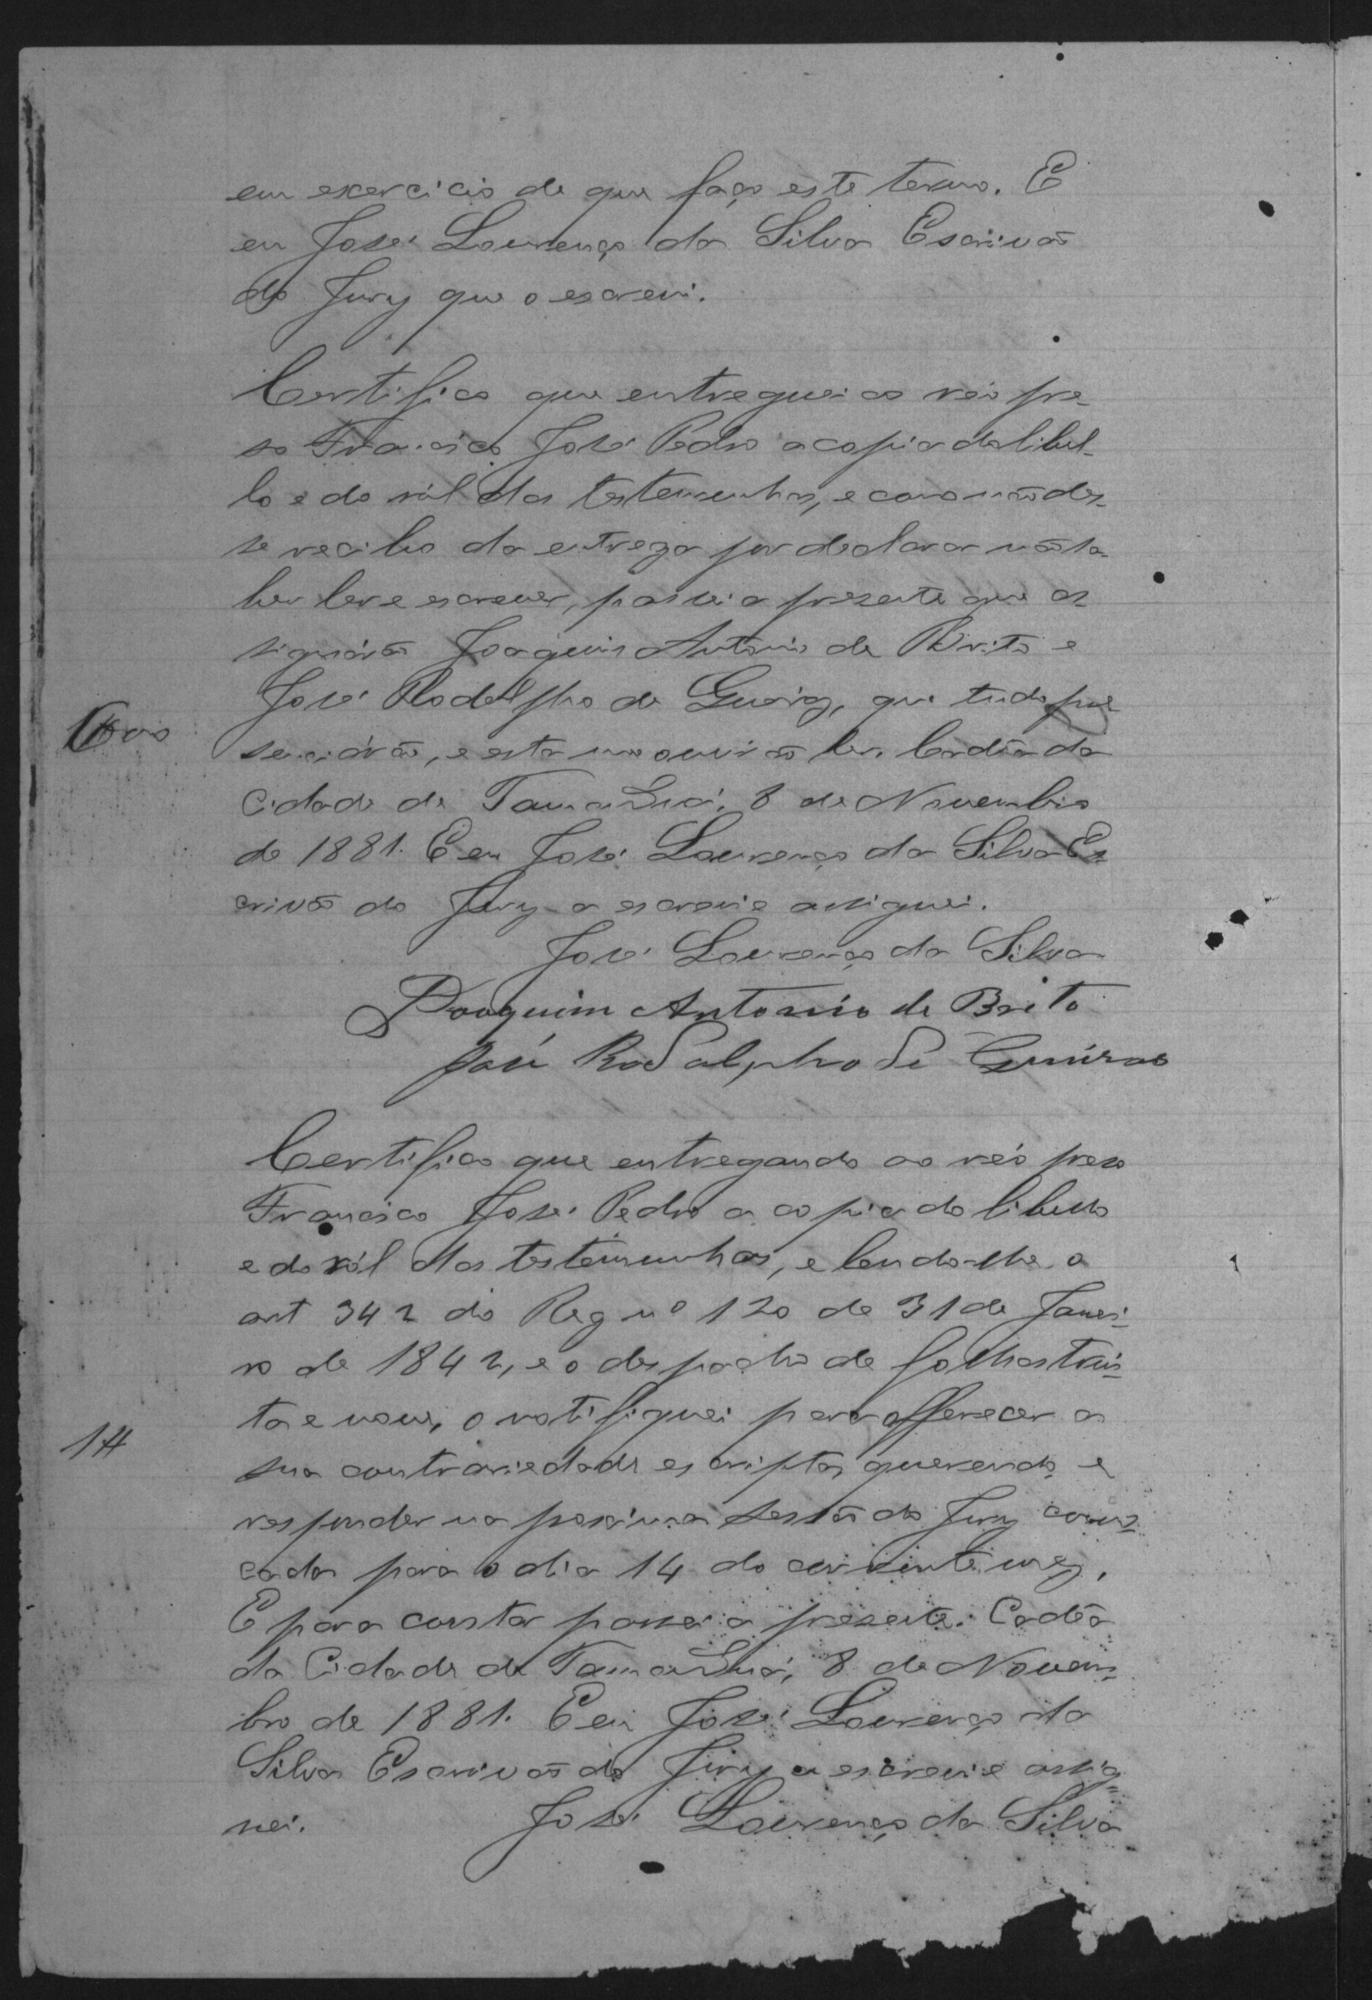 em exercicio de que faço este termo. E
eu José Lourenço da Silva Escrivão
do Jury que o escrevi.
Certifico que entreguei ao réo pre-
so Francisco José Pedro a copia do libel-
lo e do ról das testemunhas, e como não des-
se recibo da entrega por declarar não sa-
ber ler e escrever, passei a presente que as-
signárão Joaquim Antonio de Brito e
José Rodolpho de Queiroz, que tudo pre-
senciárão, e esta me ouvirão ler. Cadêa da
Cidade de Tamanduá, 8 de Novembro
de 1881. E eu José Lourenço da Silva Es-
crivão do Jury a escrevi e assignei.
José Lourenço da Silva
Joaquim Antonio de Brito
José Rodolpho de
Certifico que entregando ao réo preso
Francisco José Pedro a copia do libello
e do ról das testemunhas, e lendo-lhe o
art 342 do Reg nº 120 de 31 de Janei-
ro de 1842, e o despacho de folhas trin-
ta e nove, o notifiquei para offerecer a
sua contrariedade escripta, querendo, e
responder na proxima sessão do Jury convo-
cada para o dia 14 do corrente mez.
E para constar passei a presente. Cadêa
da Cidade de Tamanduá, 8 de Novem-
bro de 1881. E eu José Lourenço da
Silva Escrivão do Jury a escrevi e assig-
nei. José Lourenço da Silva